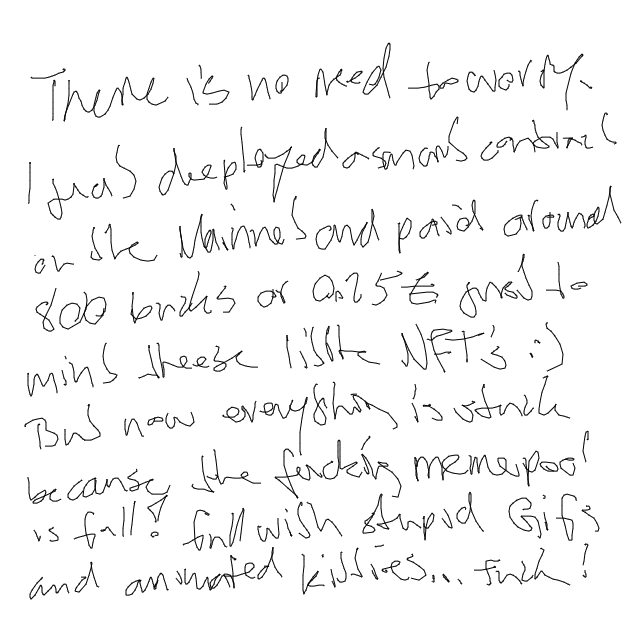 There is no need to worry.
I just deeployed a smart contract
on the Mainnet and paid around
800 bucks or 0.25 E just to
mint theese little NFT's :)
But now everything is stuck
because the fucking memepool
is full! full with stupid Gifs
and animated kitties... fuck!